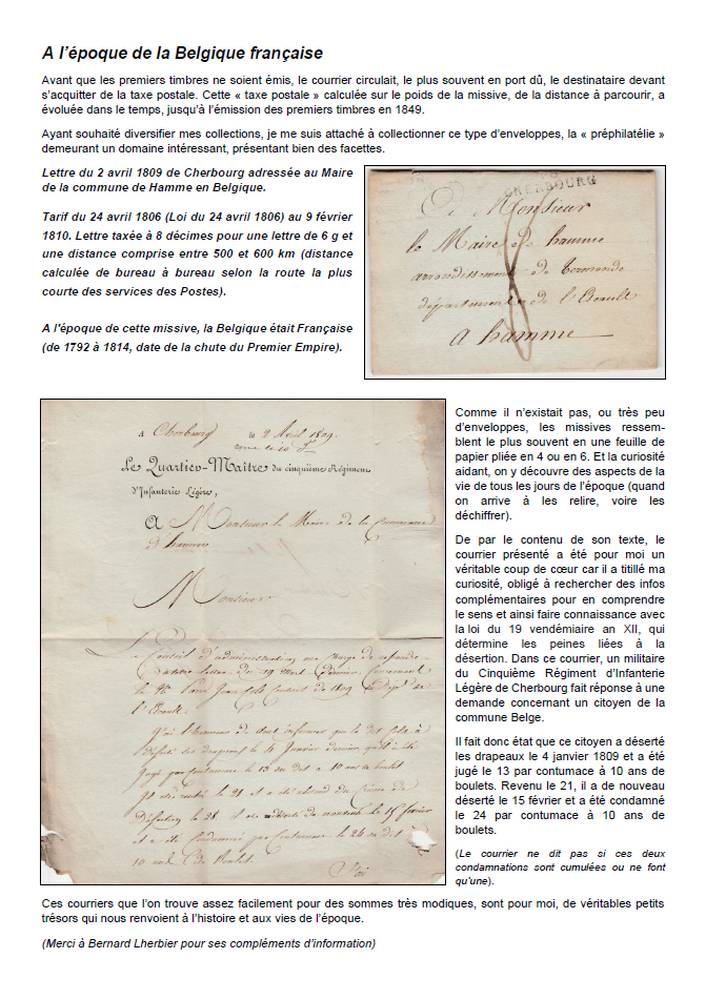 A l’époque de la Belgique française
Avant que les premiers timbres ne soient émis, le courrier circulait, le plus souvent en port dû, le destinataire devant
s’acquitter de la taxe postale. Cette « taxe postale » calculée sur le poids de la missive, de la distance à parcourir, a
évoluée dans le temps, jusqu’à l’émission des premiers timbres en 1849.
Ayant souhaité diversifier mes collections, je me suis attaché à collectionner ce type d’enveloppes, la « préphilatélie »
demeurant un domaine intéressant, présentant bien des facettes.
Lettre du 2 avril 1809 de Cherbourg adressée au Maire
de la commune de Hamme en Belgique.
Tarif du 24 avril 1806 (Loi du 24 avril 1806) au 9 février
1810. Lettre taxée à 8 décimes pour une lettre de 6 g et
une distance comprise entre 500 et 600 km (distance
calculée de bureau à bureau selon la route la plus
courte des services des Postes).
A l'époque de cette missive, la Belgique était Française
(de 1792 à 1814, date de la chute du Premier Empire).
CHERBOURG
Monsieur
le Maire de hamme
arrondissement de termonde
département de l'Escault
a hamme
a Cherbourg le 2 Avril 1809.
Le Quartier-Maître du cinquième Régiment
d'Infanterie Légère,
A Monsieur le Maire de la Commune
d hamme
Monsieur
Le Conseil d'administration me charge de répondre
a votre lettre du 19 Mars dernier, concernant
le 1809
l'Escault.
J'ai l'honneur de vous informer que le dit
déserté des drapeaux le 4 Janvier dernier qu'il a été
jugé par contumace le 13 du dit a 10 ans de boulet
le 21 et a été du crime de
désertion le 28, il a déserté de nouveau le 15 février
et a été condamné par contumace le 24 du dit à
10 ans de Boulet.
Comme il n’existait pas, ou très peu
d’enveloppes, les missives ressem-
blent le plus souvent en une feuille de
papier pliée en 4 ou en 6. Et la curiosité
aidant, on y découvre des aspects de la
vie de tous les jours de l’époque (quand
on arrive à les relire, voire les
déchiffrer).
De par le contenu de son texte, le
courrier présenté a été pour moi un
véritable coup de cœur car il a titillé ma
curiosité, obligé à rechercher des infos
complémentaires pour en comprendre
le sens et ainsi faire connaissance avec
la loi du 19 vendémiaire an XII, qui
détermine les peines liées à la
désertion. Dans ce courrier, un militaire
du Cinquième Régiment d’Infanterie
Légère de Cherbourg fait réponse à une
demande concernant un citoyen de la
commune Belge.
Il fait donc état que ce citoyen a déserté
les drapeaux le 4 janvier 1809 et a été
jugé le 13 par contumace à 10 ans de
boulets. Revenu le 21, il a de nouveau
déserté le 15 février et a été condamné
le 24 par contumace à 10 ans de
boulets.
(Le courrier ne dit pas si ces deux
condamnations sont cumulées ou ne font
qu’une).
Ces courriers que l’on trouve assez facilement pour des sommes très modiques, sont pour moi, de véritables petits
trésors qui nous renvoient à l’histoire et aux vies de l’époque.
(Merci à Bernard Lherbier pour ses compléments d’information)